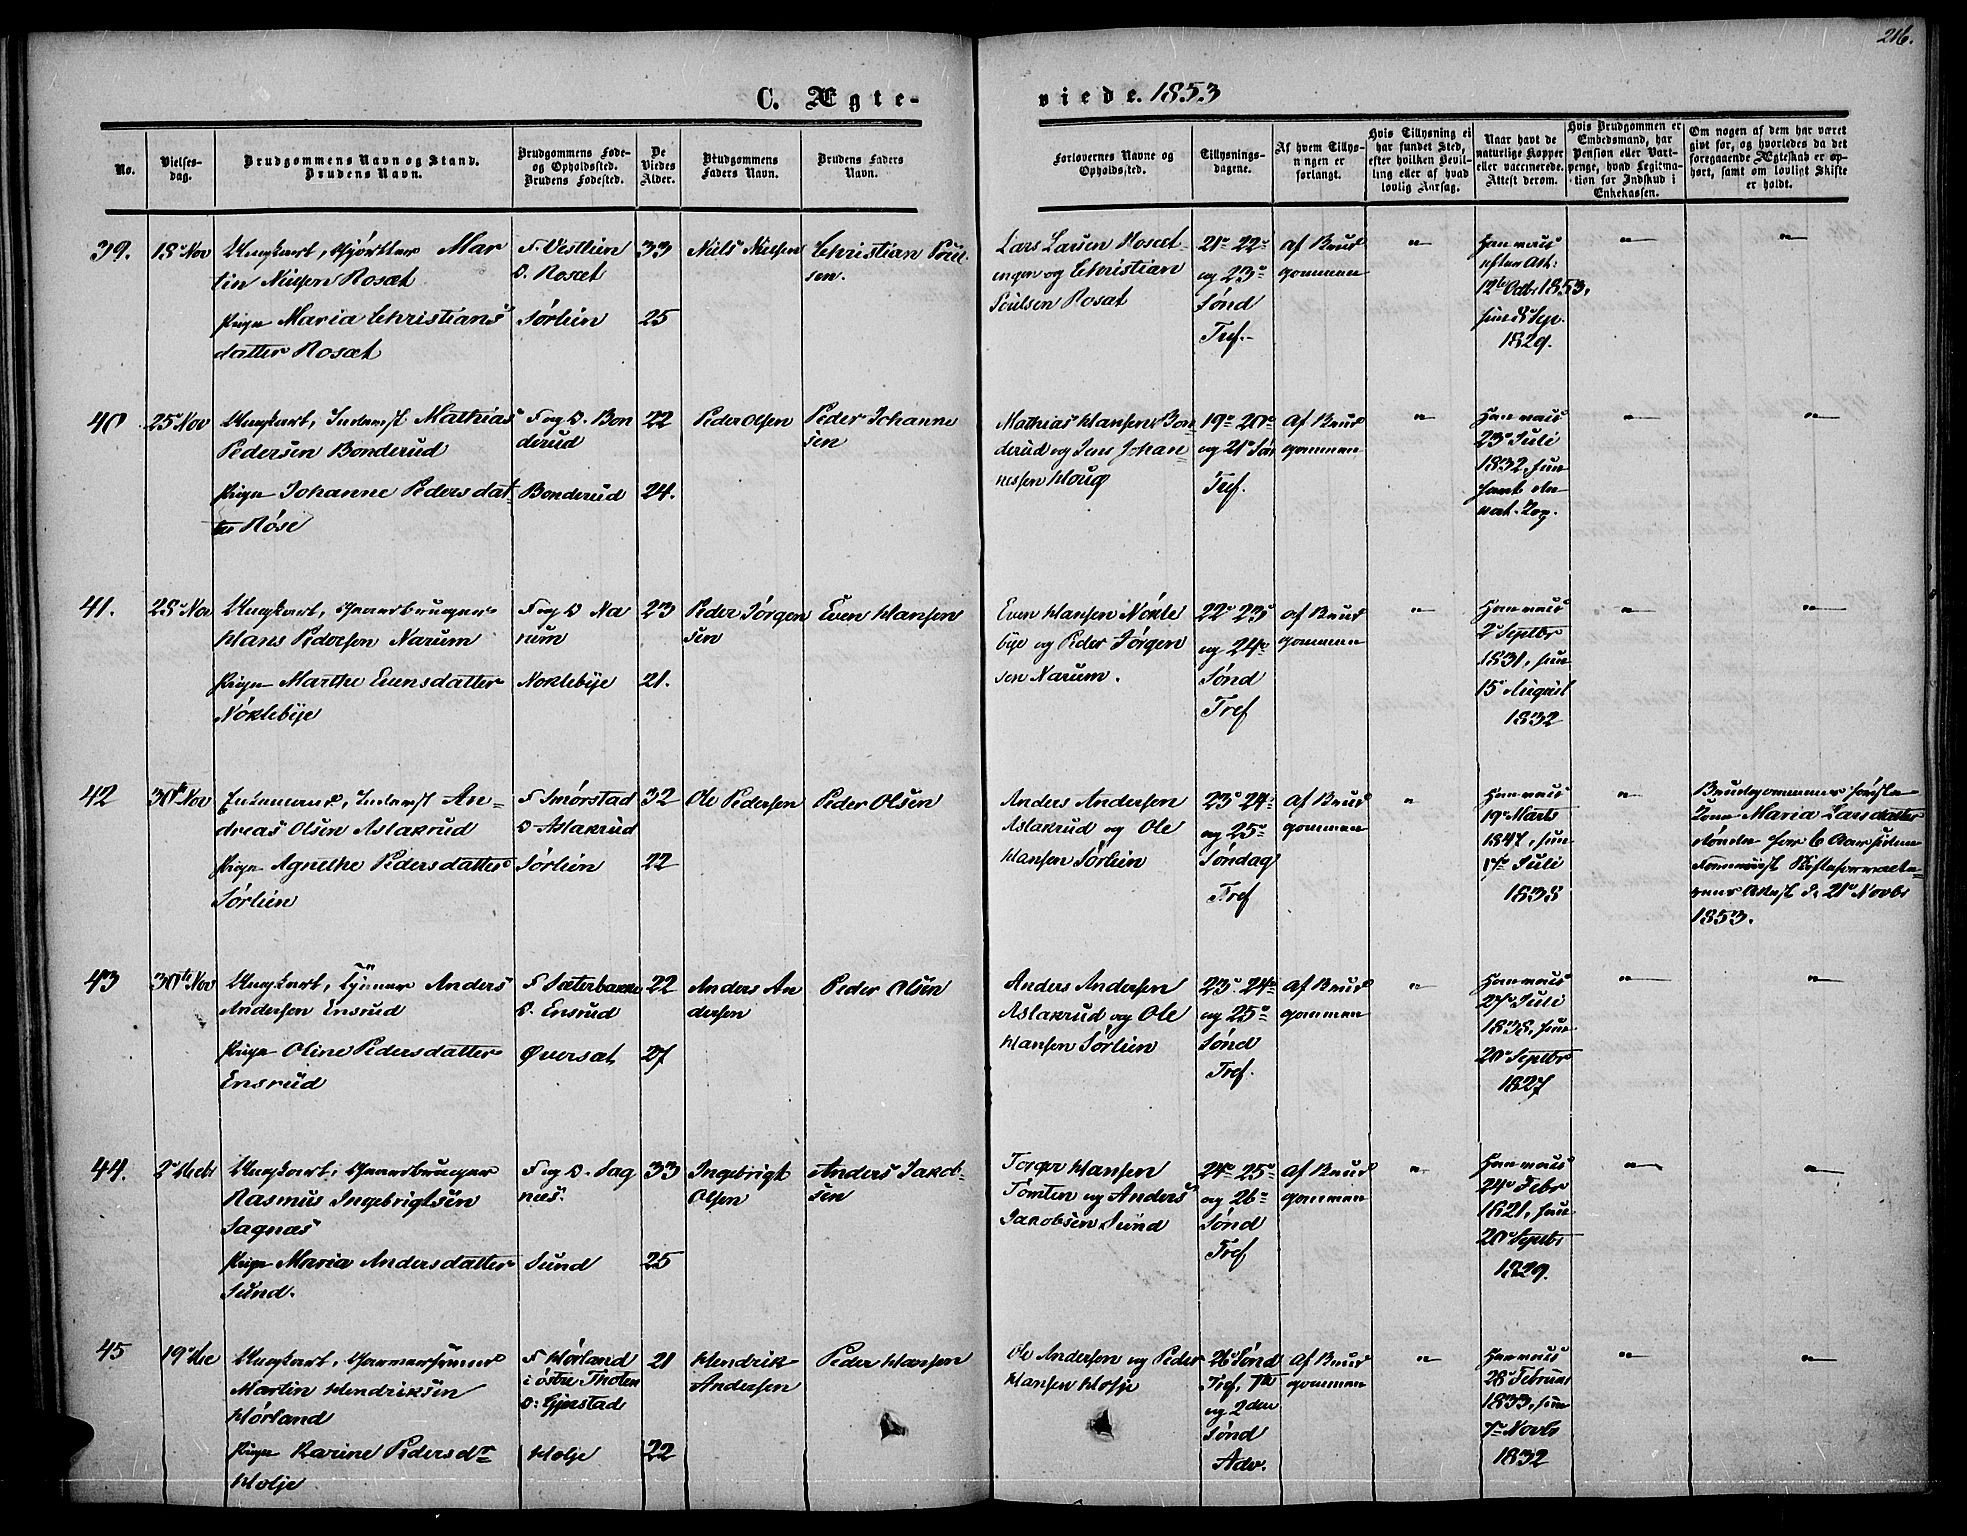 216.
C. Ægte-
viede. 1853
No.
Vielses-
dag.
Brudgommens Navn og Stand.
Brudens Navn.
Brudgommens Føde-
og Opholdssted.
Brudens Fødested.
De
Viedes
Alder.
Brudgommens
Faders Navn.
Brudens Faders
Navn.
Forlovernes Navne og
Opholdssted.
Tillysnings-
dagene.
Af hvem Tillys-
ningen er
forlangt.
Hvis Tillysning ei
har fundet Sted,
efter hvilken Bevil-
ling eller af hvad
lovlig Aarsag.
Naar havt de
naturlige Kopper
eller vaccinerede.
Attest derom.
Hvis Brudgommen er
Embedsmand, har
Pension eller Vart-
penge, hvad Legitima-
tion for Indskud i
Enkekassen.
Om nogen af dem har været
givt før, og hvorledes da det
foregaaende Ægteskab er op-
hørt, samt om lovligt Skifte
er holdt.
39.
18de Nov
Ungkarl, Gjørtler Mar
tin Nielsen Rosæt
Pige Maria Christians
datter Rosæt
F. Vestlien
O. Rosæt
Sørlien
33
25
Niels Nielsen
Christian Poul-
sen.
Lars Larsen Rosæt-
engen og Christian
Poulsen Rosæt
21de 22de
og 23de
Sønd
Tref.
af Brud
gommen
"
Han vac
efter Att:
12te Octbr 1853,
hun d 8 Sep.
1829.
"
"
40
25de Nov
Ungkarl, Inderst Mathias
Pedersen Bonderud
Pige Johanne Pedersdat-
ter Røse
F. og O. Bon
derud
Bonderud
22
24.
Peder Olsen
Peder Johanne
sen
Mathias Hansen Bon
derud og Jens Johan-
nessen Houg
19de 20de
og 21de Søn
Tref.
af Brud
gommen
"
Han vac
23de Juli
1832, hun
havt de
nat. Kop.
"
"
41.
28de Nov
Ungkarl, Gaardbruger
Hans Pedersen Narum
Pige Marthe Evensdatter
Nøklebye
F. og O. Na
rum
Noklebye
23
21.
Peder Jørgen
sen
Even Hansen
Even Hansen Nøkle
bye og Peder Jørgen
sen Narum.
22de 23de
og 24de
Sønd
Tref
af Brud
gommen
"
Han vac
2de Septbr
1831, hun
15de August
1832
"
"
42
30te Nov
Enkemand, Inderst An-
dreas Olsen Aslakrud
Pige Agnethe Pedersdatter
Sørlien
F. Smørstad
O. Aslakrud
Sørlien
32
22
Ole Pedersen
Peder Olsen
Anders Andersen
Aslakrud og Ole
Hansen Sørlien
23de 24de
og 25de
Søndag
Tref
af Brud
gommen
"
Han vac
19de Marts
1847, hun
17de Juli
1838
"
Brudgommens første
Kone Maria Larsdatter
døde for 6 Aar siden
Skifteforvalte-
rens Attest d. 21de Novbr
1853.
43
30te Nov
Ungkarl, Anders
Andersen Ensrud
Pige Oline Pedersdatter
Ensrud
F. Sæterbakke
O. Ensrud
Øversæt
22
27
Anders An
dersen
Peder Olsen
Anders Andersen
Aslakrud og Ole
Hansen Sørlien
23de 24de
og 25de
Sønd
Tref.
af Brud
gommen
"
Han vac
27de Juli
1838, hun
20de Septbr
1827
"
"
44.
2de Decbr
Ungkarl, Gaardbruger
Rasmus Ingebrigtsen
Sagnæs
Pige Maria Andersdatter
Sund.
F. og O. Sag
næs.
Sund
33
25
Ingebrigt
Olsen
Anders Jakob-
sen
Torger Hansen
Tomten og Anders
Jakobsen Sund
24de 25de
og 26de
Sønd
Tref
af Brud
gommen
"
Han vac
24de Febr
1821, hun
20de Septbr
1829.
"
"
45
19de Dec
Ungkarl,
Martin Hendriksen
Hørland
Pige Karine Pedersdr
Holje
F. Hørland
i østre Thoten
O: Gjerstad
Holje
21
22
Hendrik
Andersen
Peder Hansen
Ole Andersen og Peder
Hansen Holje
26de Sønd
Tref, 1ste
og 2den
Sønd
Adv.
af Brud
gommen
"
Han vac
28de Februar
1833, hun
7de Novbr
1832
"
"